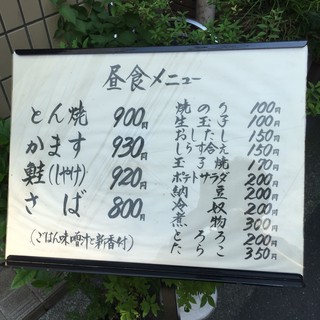 昼食メニュー
とん焼 900円
かます 930円
鮭(しゃけ) 920円
さば 800円
(ごはん味噌汁と新香付)
焼のり 100円
生玉子 100円
おしたし 150円
しらす 150円
玉子焼 170円
ポテトサラダ 200円
納豆 200円
冷奴 200円
煮物 300円
とろろ 200円
たらこ 350円